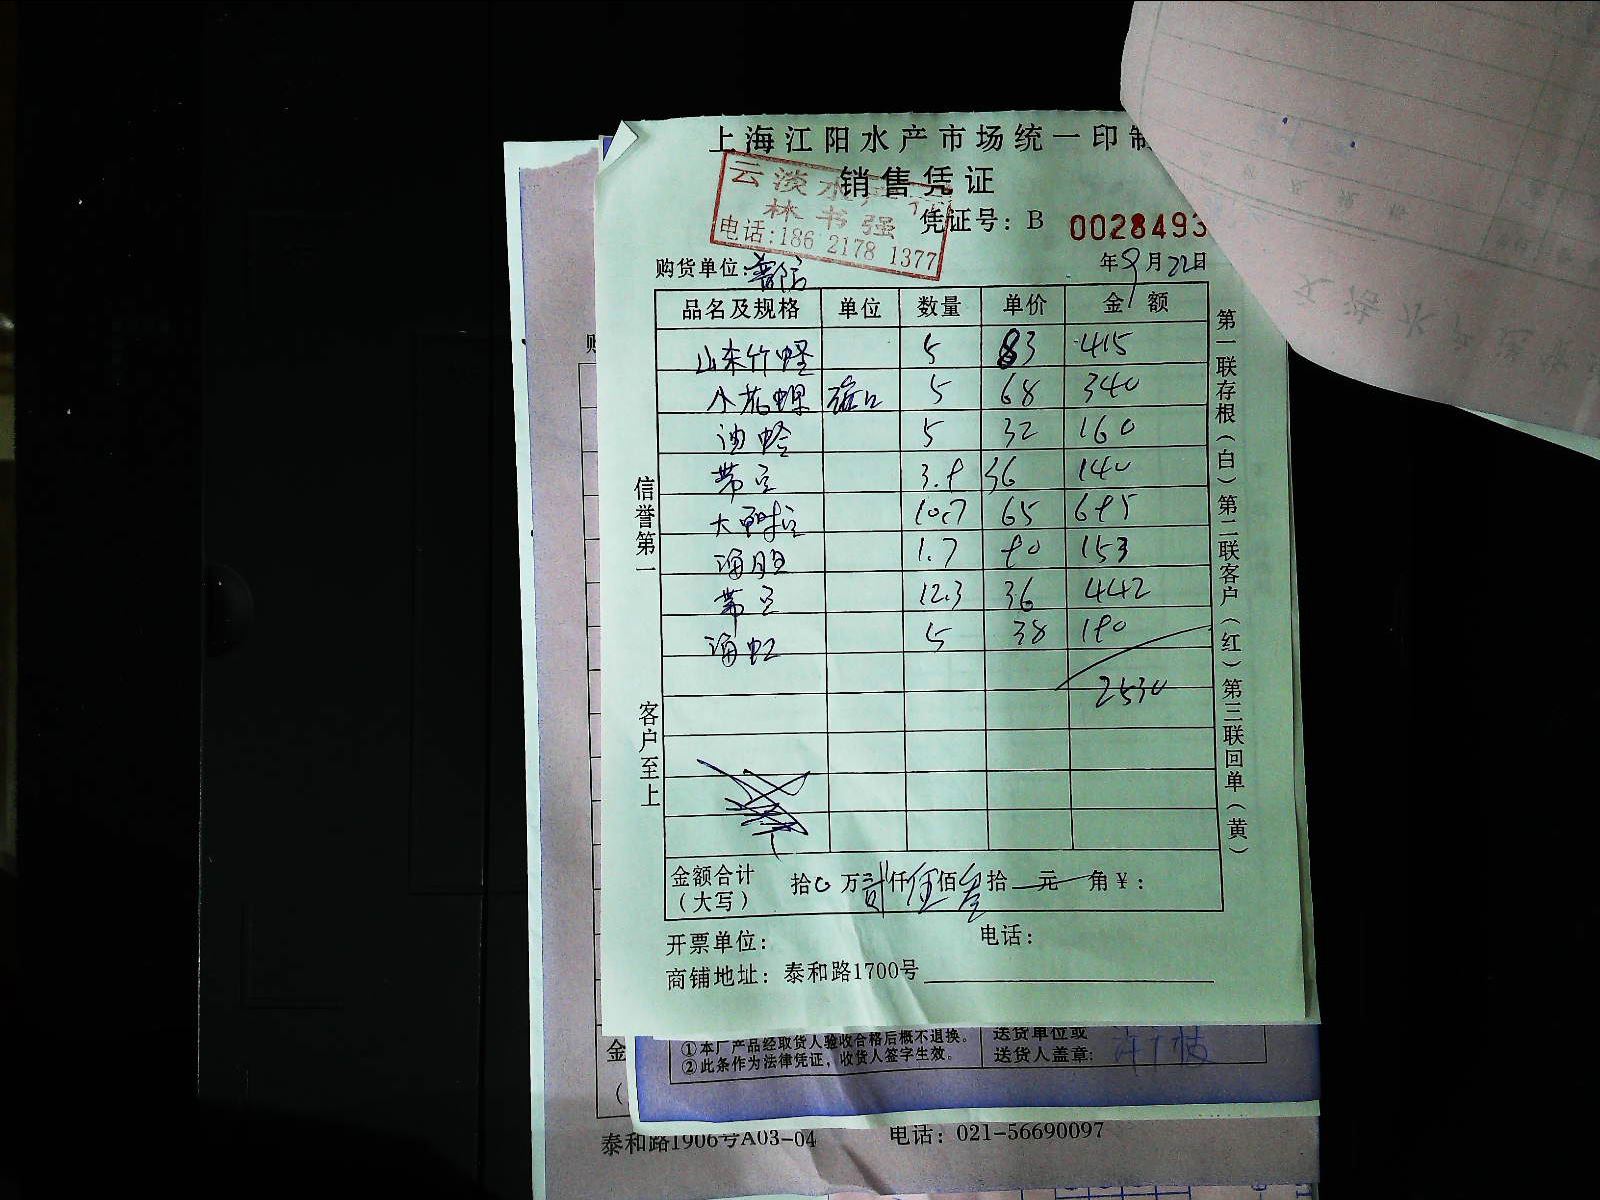 上海江阳水产市场统一印制
销售凭证
云淡水产行
林书强
电话:186 2178 1377
凭证号: B 0028493
购货单位:
年9月22日
品名及规格 单位 数量 单价 金额
山东竹蛏 5 83 415
小花螺 5 68 340
油蛤 5 32 160
带豆 3.9 36 140
大 10.7 65 695
海胆 1.7 90 153
带豆 12.3 36 442
海虹 5 38 190
2530
信誉第一
客户至上
第一联存根(白)第二联客户(红)第三联回单(黄)
金额合计
(大写)
拾0万贰仟伍佰叁拾 元 角¥:
开票单位: 电话:
商铺地址: 泰和路1700号
①本厂产品经取货人验收合格后概不退换。
②此条作为法律凭证,收货人签字生效。
送货单位或
送货人盖章:
金
泰和路1906号A03-04 电话: 021-56690097